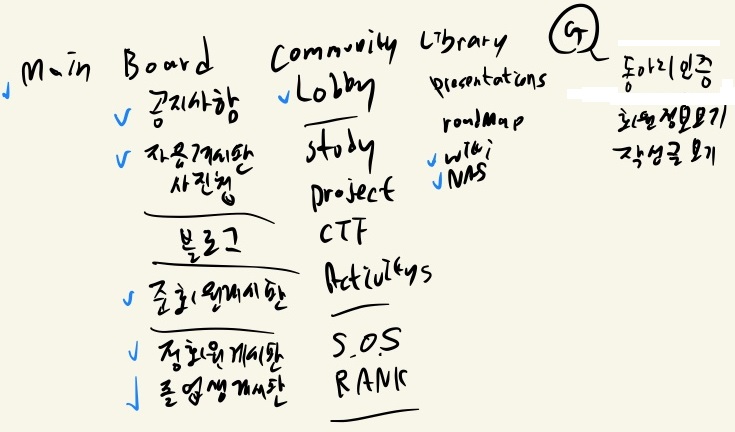 Main
Board
공지사항
자용게시판
사진첩
블로그
준회원게시판
정회원게시판
졸업생게시판
Community
Lobby
study
project
CTF
Activitys
S.O.S
RANK
Library
presentations
roadmap
wiki
NAS
동아리인증
회원정보보기
작성글보기